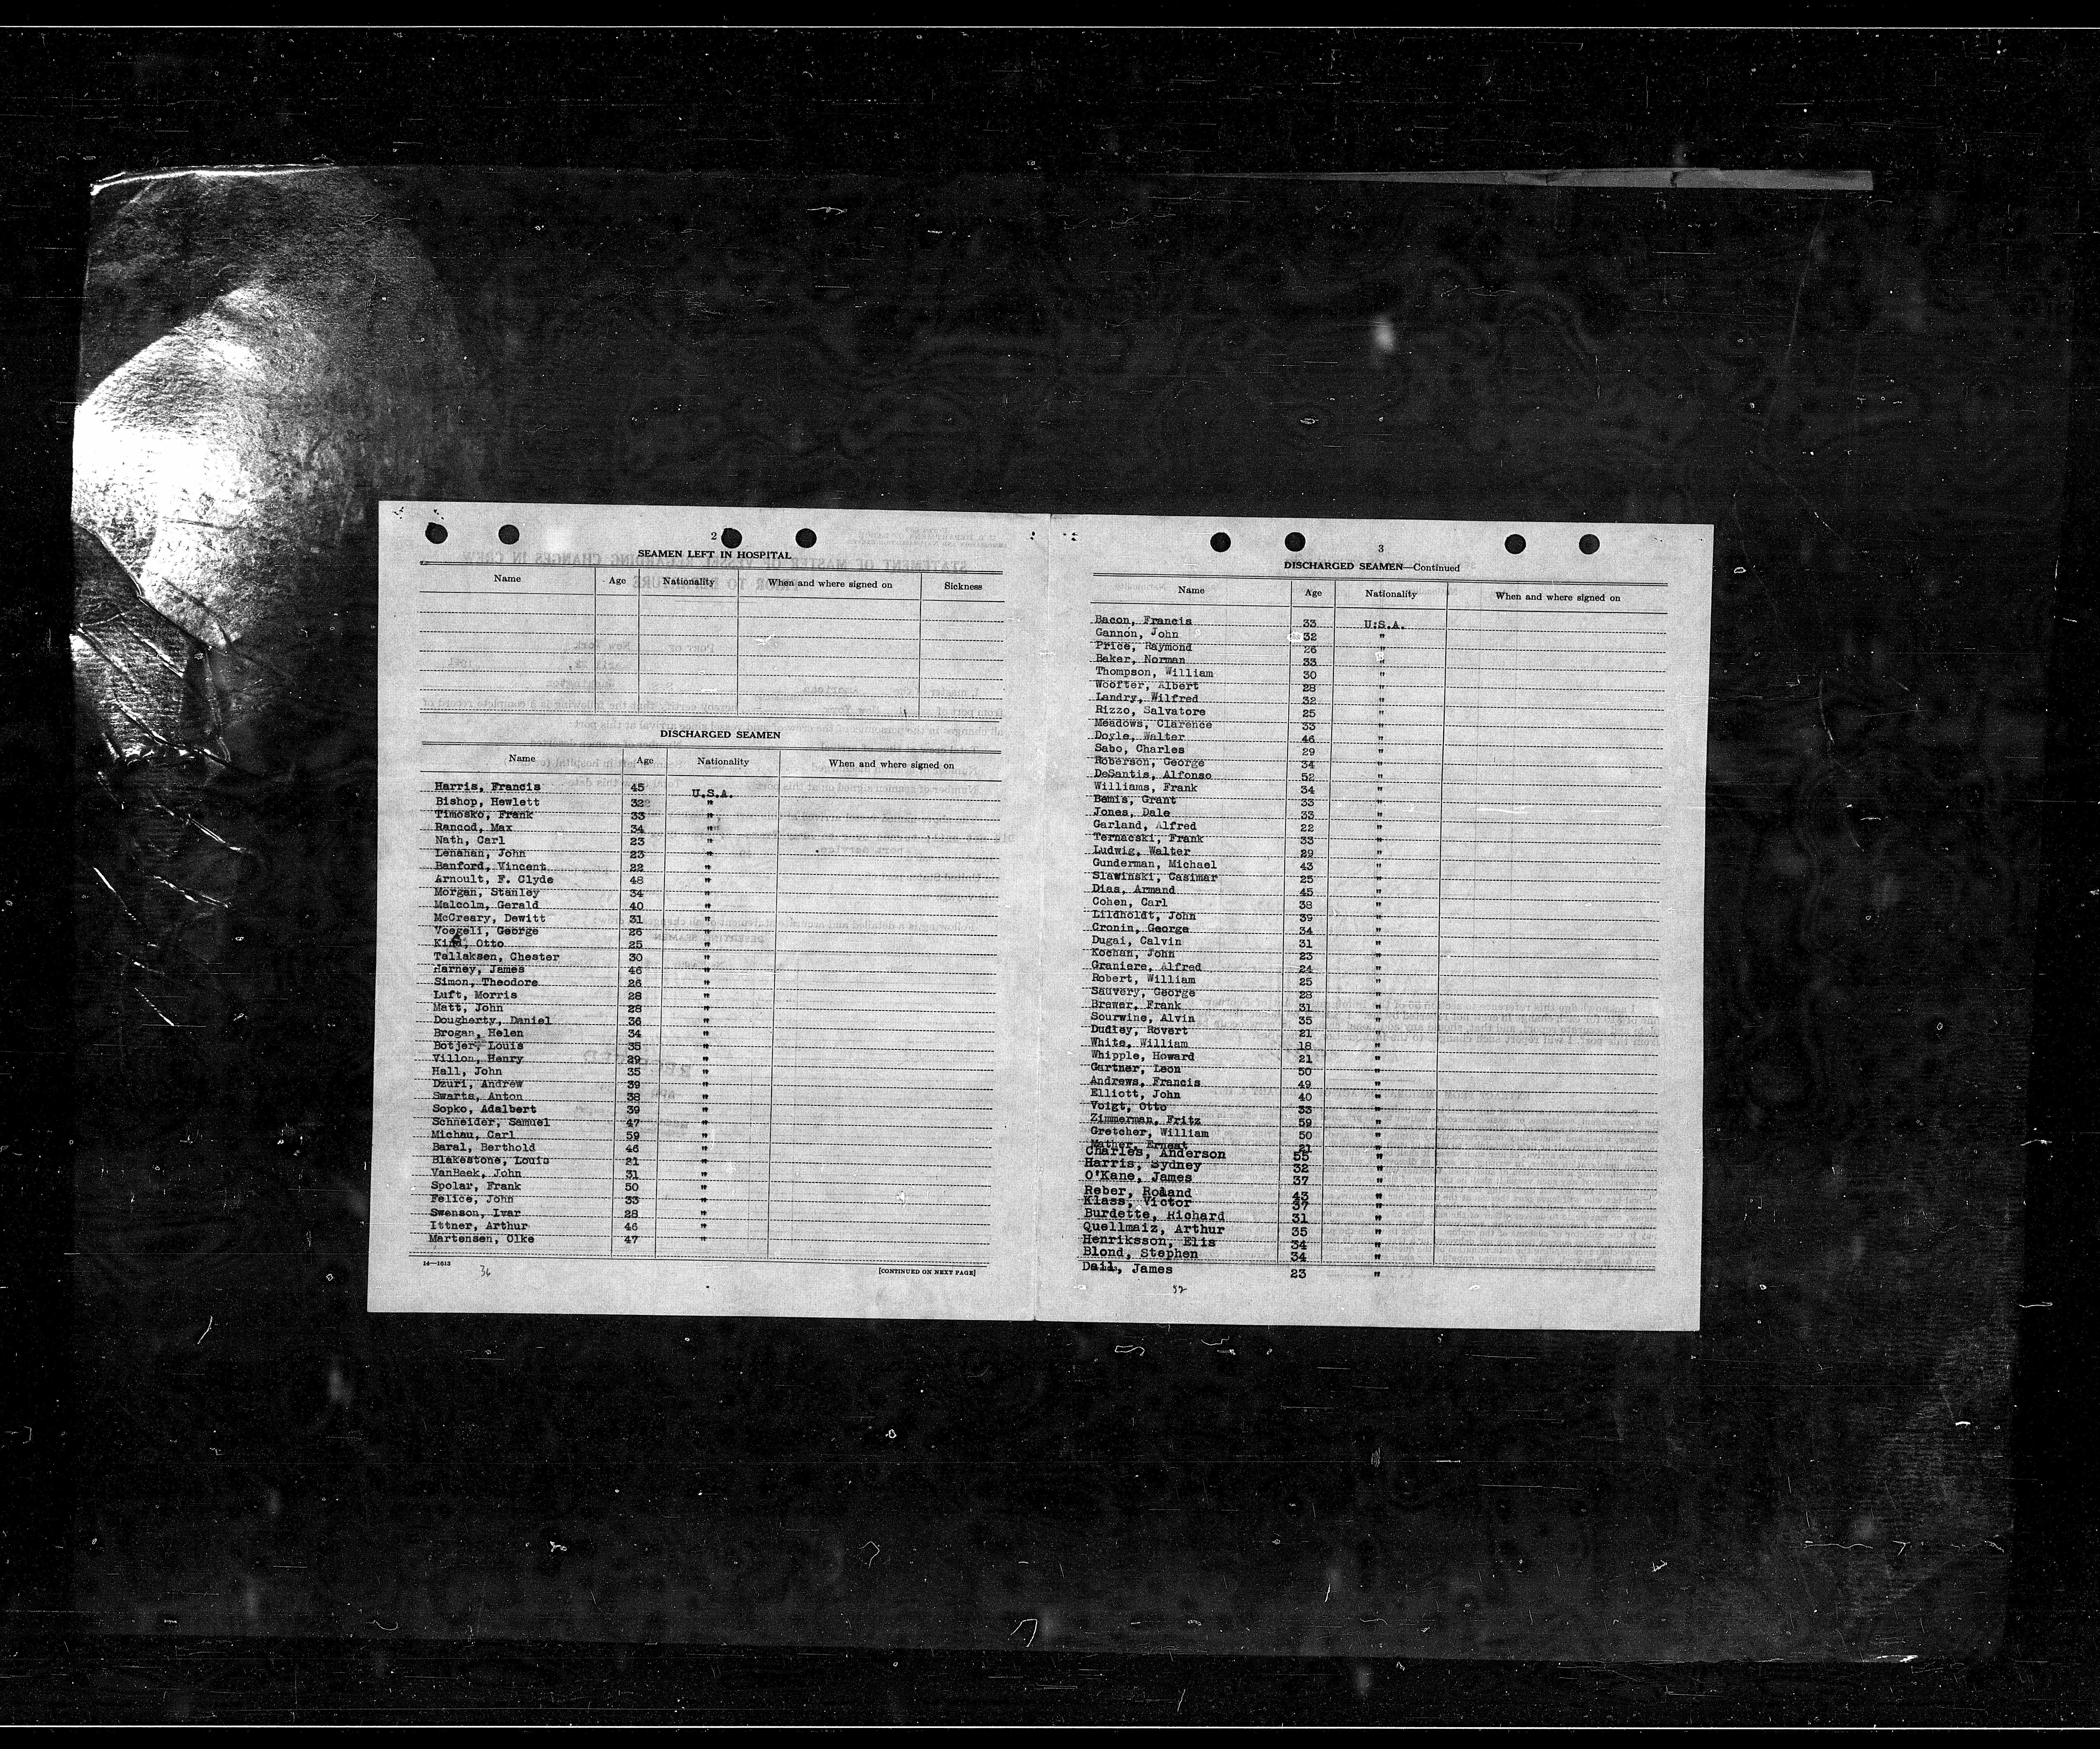 2
SEAMEN LEFT IN HOSPITAL
Name Age Nationality When and where signed on Sickness
DISCHARGED SEAMEN
Name Age Nationality When and where signed on
Harris, Francis 45 U.S.A.
Bishop, Hewlett 32 "
Timosko, Frank 33 "
Rancod, Max 34 "
Nath, Carl 23 "
Lenahan, John 23 "
Banford, Vincent 22 "
Arnoult, F. Clyde 48 "
Morgan, Stanley 34 "
Malcolm, Gerald 40 "
McCreary, Dewitt 31 "
Voegeli, George 26 "
Otto 25 "
Tallaksen, Chester 30 "
Harney, James 46 "
Simon, Theodore 26 "
Luft, Morris 28 "
Matt, John 28 "
Dougherty, Daniel 36 "
Brogan, Helen 34 "
Botjer, Louis 35 "
Villon, Henry 29 "
Hall, John 35 "
Dzuri, Andrew 39 "
Swarts, Anton 38 "
Sopko, Adalbert 39 "
Schneider, Samuel 47 "
Michau, Carl 59 "
Baral, Berthold 46 "
Blakestone, Louis 21 "
VanBeek, John 31 "
Spolar, Frank 50 "
Felice, John 33 "
Swenson, Ivar 28 "
Ittner, Arthur 46 "
Martensen, Olke 47 "
14—1613
36
[CONTINUED ON NEXT PAGE]
3
DISCHARGED SEAMEN—Continued
Name Age Nationality When and where signed on
Bacon, Francis 33 U.S.A.
Gannon, John 32 "
Price, Raymond 26 "
Baker, Norman 33 "
Thompson, William 30 "
Woofter, Albert 28 "
Landry, Wilfred 32 "
Rizzo, Salvatore 25 "
Meadows, Clarence 33 "
Doyle, Walter 46 "
Sabo, Charles 29 "
Roberson, George 34 "
DeSantis, Alfonso 52 "
Williams, Frank 34 "
Bemis, Grant 33 "
Jones, Dale 33 "
Garland, Alfred 22 "
Ternacski, Frank 33 "
Ludwig, Walter 29 "
Gunderman, Michael 43 "
Slawinski, Casimar 25 "
Dias, Armand 45 "
Cohen, Carl 38 "
Lildholdt, John 39 "
Cronin, George 34 "
Dugai, Calvin 31 "
Kochan, John 23 "
Graniere, Alfred 24 "
Robert, William 25 "
Sauvery, George 28 "
Brewer, Frank 31 "
Sourwine, Alvin 35 "
Dudley, Rovert 21 "
White, William 18 "
Whipple, Howard 21 "
Gartner, Leon 50 "
Andrews, Francis 49 "
Elliott, John 40 "
Voigt, Otto 33 "
Zimmerman, Fritz 59 "
Gretcher, William 50 "
Mather, Ernest 21 "
Charles, Anderson 55 "
Harris, Sydney 32 "
O'Kane, James 37 "
Reber, Roland 43 "
Klass, Victor 37 "
Burdette, Richard 31 "
Quellmaiz, Arthur 35 "
Henriksson, Elis 34 "
Blond, Stephen 34 "
Dail, James 23 "
52